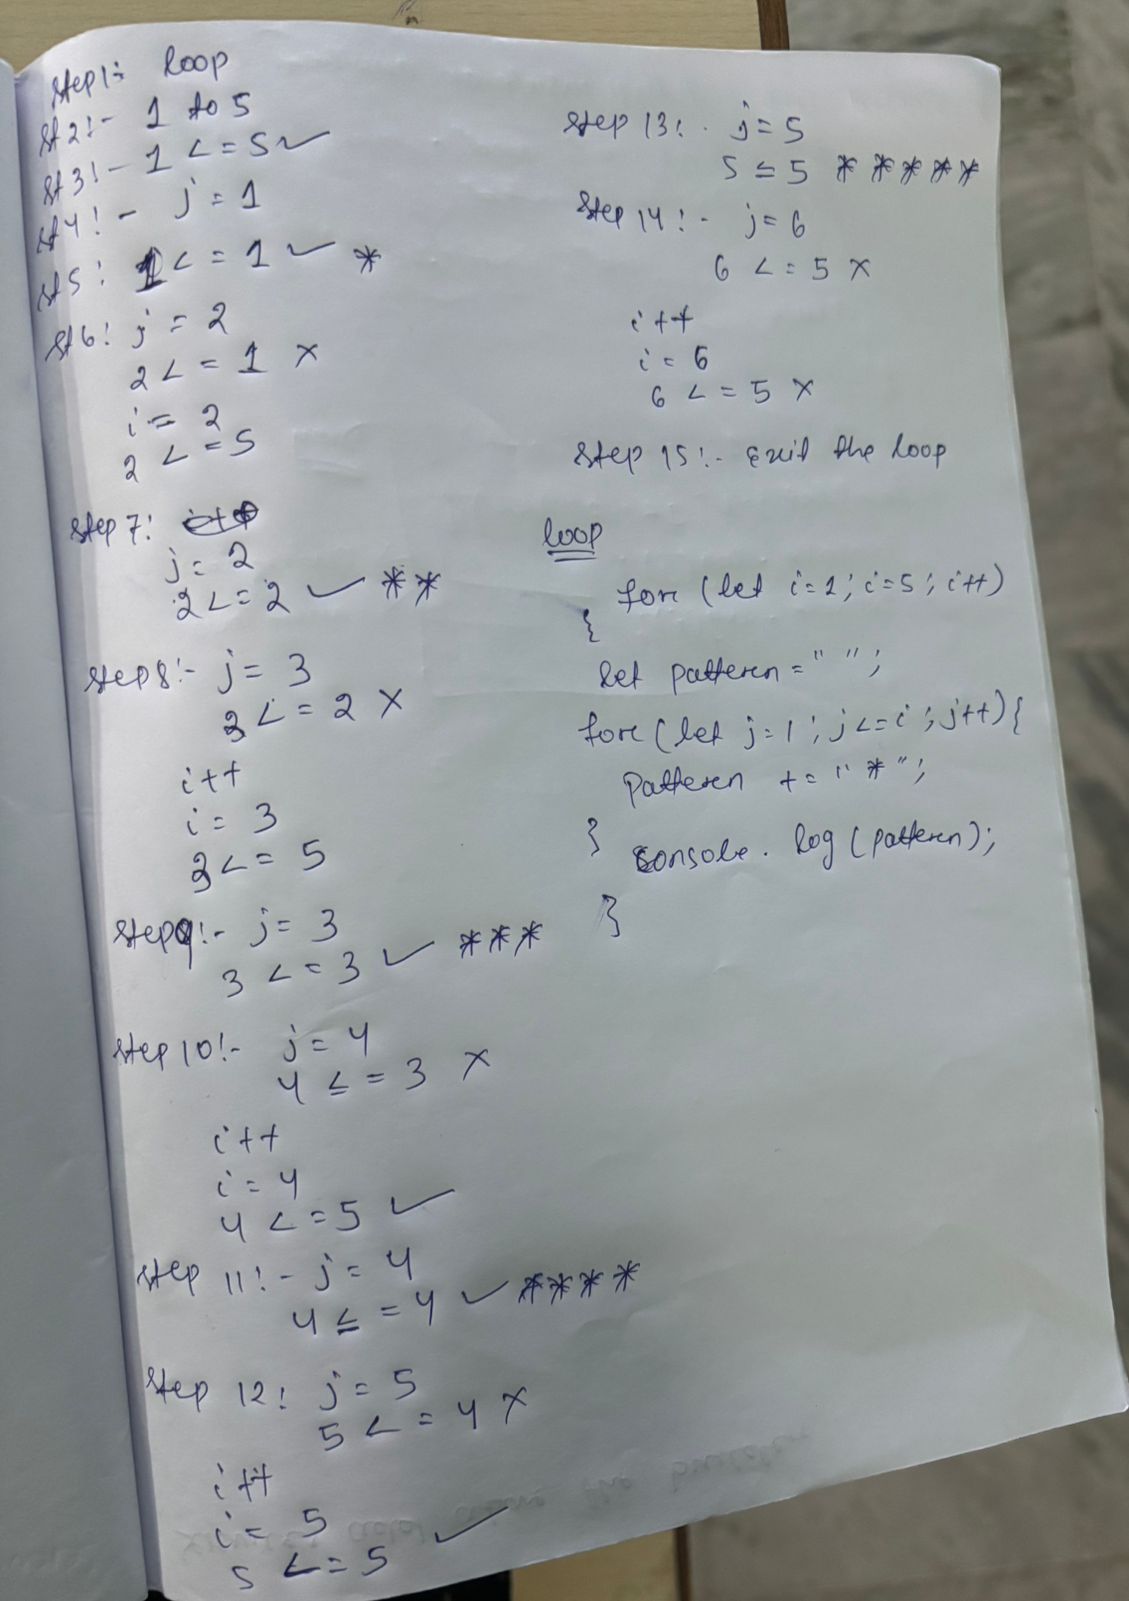 Step 1:- loop
St 2:- 1 to 5
St 3:- 1 <= 5 ✓
St 4:- j = 1
St 5: 1 <= 1 ✓ *
St 6: j = 2
2 <= 1 ×
i = 2
2 <= 5
Step 7:
j = 2
2 <= 2 ✓ **
Step 8:- j = 3
3 <= 2 ×
i++
i = 3
3 <= 5
Step 9:- j = 3
3 <= 3 ✓ ***
Step 10:- j = 4
4 <= 3 ×
i++
i = 4
4 <= 5 ✓
Step 11:- j = 4
4 <= 4 ✓ ****
Step 12: j = 5
5 <= 4 ×
i++
i = 5
5 <= 5 ✓
Step 13:- j = 5
5 ≤ 5 * * * * *
Step 14:- j = 6
6 <= 5 ×
i++
i = 6
6 <= 5 ×
Step 15:- Exit the loop
loop
for (let i=1; i=5; i++)
{
let patteren = " ";
for (let j=1; j<=i; j++){
Patteren += "*";
}
console.log(patteren);
}